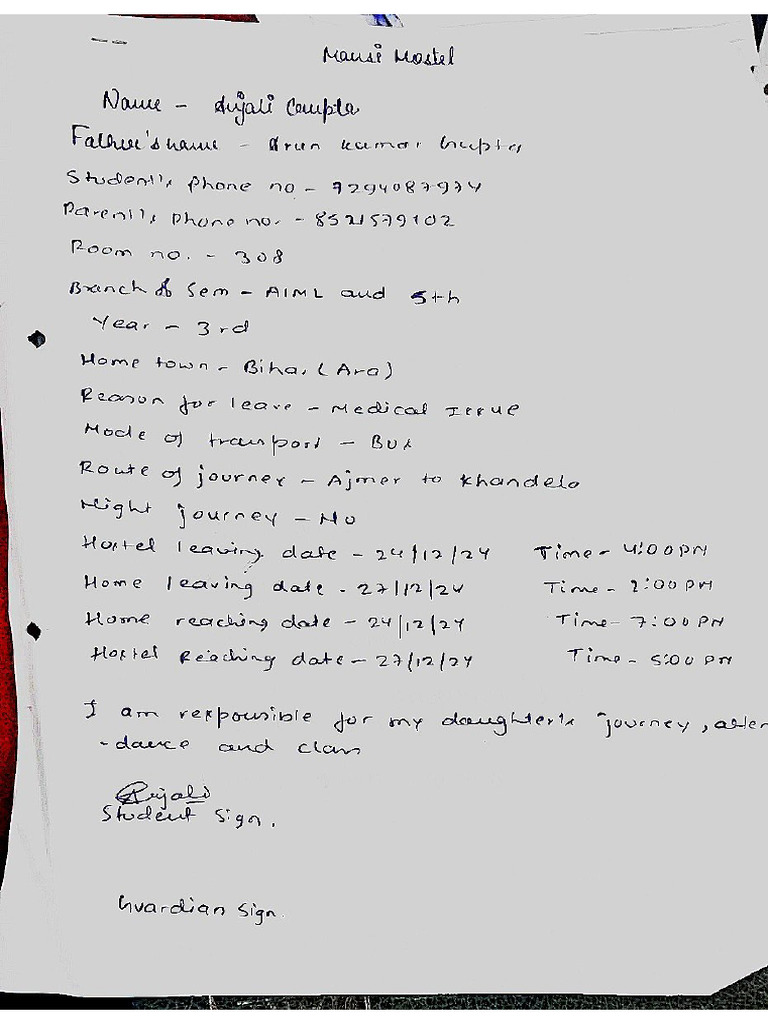 Mansi Hostel
Name - Anjali Gupta
Father's name - Arun Kumar Gupta
Student's Phone no - 7294087974
Parent's Phone no. - 8521579102
Room no. - 308
Branch & Sem - AIML and 5th
Year - 3rd
Home town - Bihar (Ara)
Reason for leave - Medical Issue
Mode of transport - Bus
Route of journey - Ajmer to Khandela
Night journey - No
Hostel leaving date - 24/12/24 Time - 4:00 PM
Home leaving date - 27/12/24 Time - 2:00 PM
Home reaching date - 24/12/24 Time - 7:00 PM
Hostel Reaching date - 27/12/24 Time - 5:00 PM
I am responsible for my daughter's journey, atten
-dance and class
Anjali
Student Sign.
Guardian Sign.